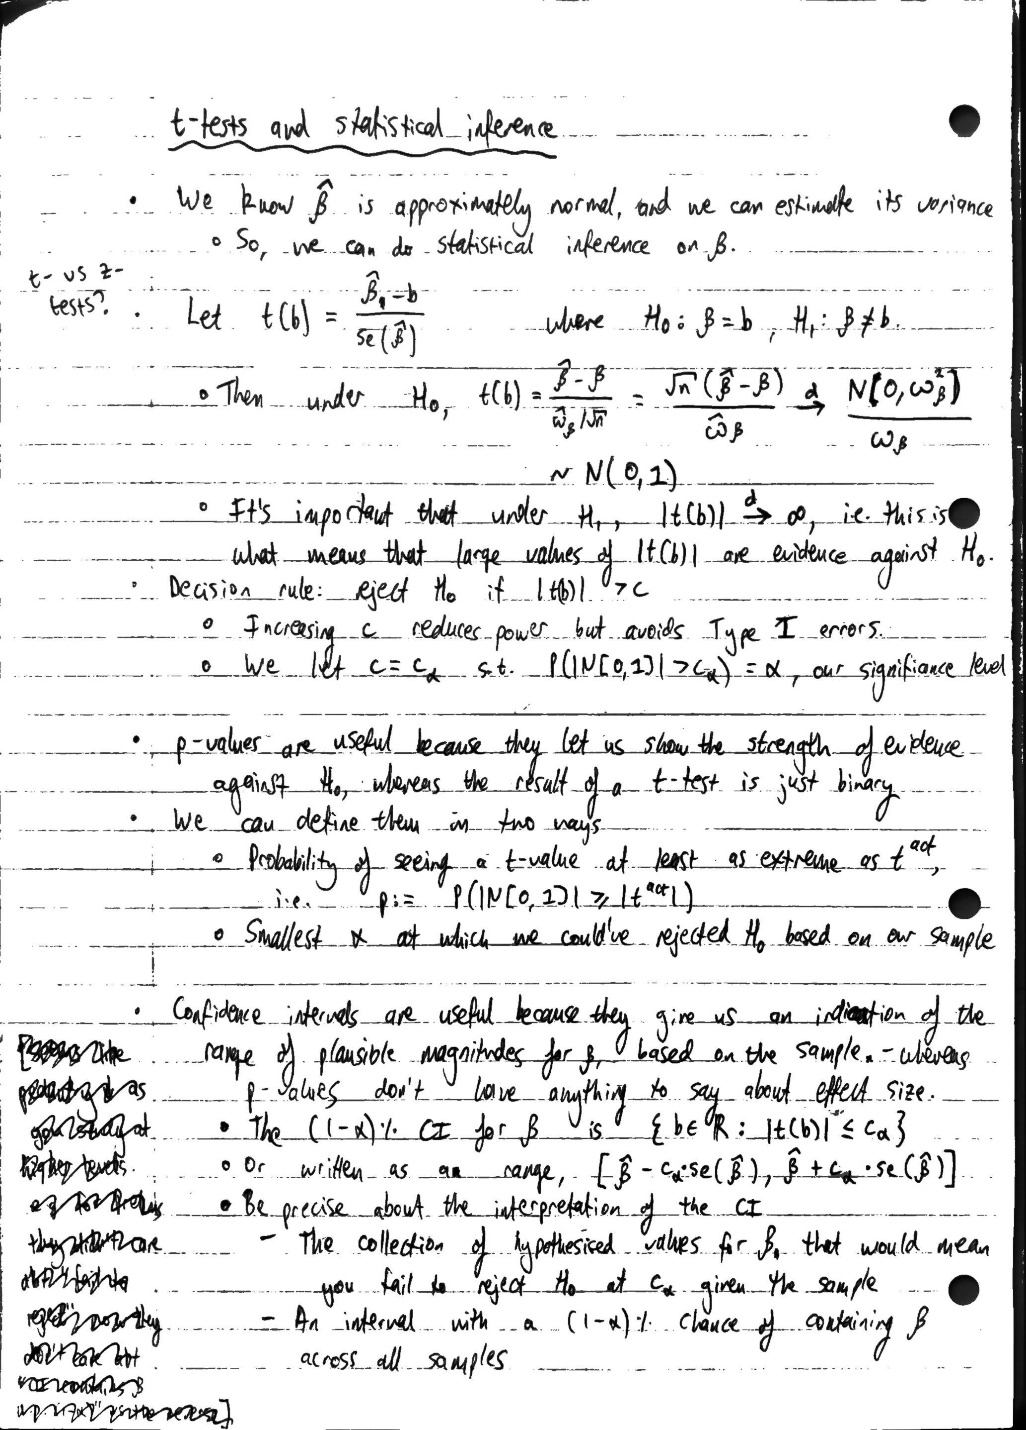 t-tests and statistical inference
• We know β̂ is approximately normal, and we can estimate its variance
◦ So, we can do statistical inference on β.
t- vs z-
tests?
• Let t(b) = (β̂ - b) / se(β̂) where H₀: β = b, H₁: β ≠ b.
◦ Then under H₀, t(b) = (β̂ - β) / (ω̂_β/√n) = √n(β̂ - β) / ω̂_β →d N[0, ω²_β] / ω_β
~ N(0,1)
◦ It's important that under H₁, |t(b)| →d ∞, i.e. this is
what means that large values of |t(b)| are evidence against H₀.
• Decision rule: reject H₀ if |t(b)| > c
◦ Increasing c reduces power but avoids Type I errors.
◦ We let c = c_α s.t. P(|N[0,1]| > c_α) = α, our signifiance level
• p-values are useful because they let us show the strength of evidence
against H₀, whereas the result of a t-test is just binary
• We can define them in two ways
◦ Probability of seeing a t-value at least as extreme as t^act,
i.e. p := P(|N[0,1]| ⩾ |t^act|)
◦ Smallest α at which we could've rejected H₀ based on our sample
• Confidence intervals are useful because they give us an indication of the
range of plausible magnitudes for β, based on the sample. - whereas
p-values don't have anything to say about effect size.
• The (1-α)% CI for β is {b∈ℝ : |t(b)| ≤ c_α}
◦ Or written as a range, [β̂ - c_α·se(β̂), β̂ + c_α·se(β̂)]
• Be precise about the interpretation of the CI
- The collection of hypothesised values for β, that would mean
you fail to reject H₀ at c_α given the sample
- An interval with a (1-α)% chance of containing β
across all samples